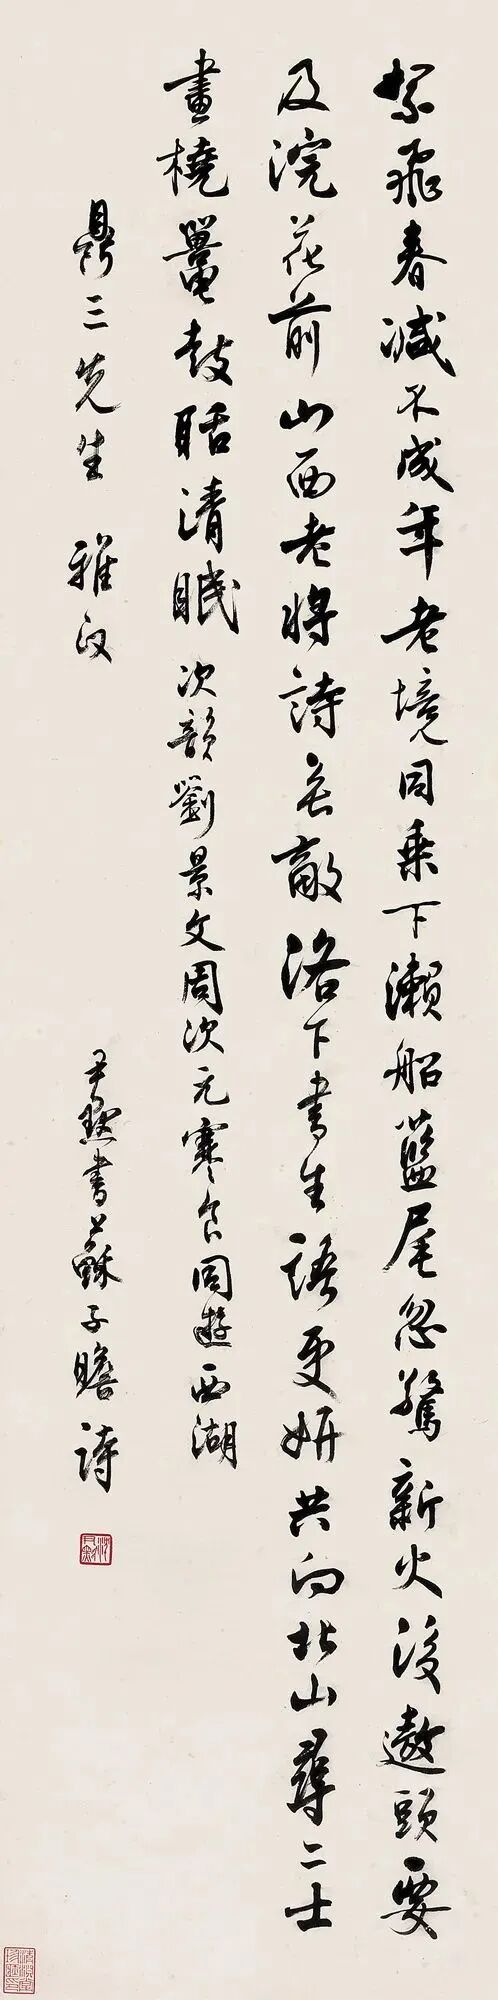 絮飛春減不成年老境同乘下瀨船藍尾忽驚新火後遨頭要
及浣花前山西老將詩無敵洛下書生語更妍共向北山尋二士
畫橈鼉鼓聒清眠次韻劉景文周次元寒食同遊西湖
鼎三先生雅政
尹默書蘇子瞻詩